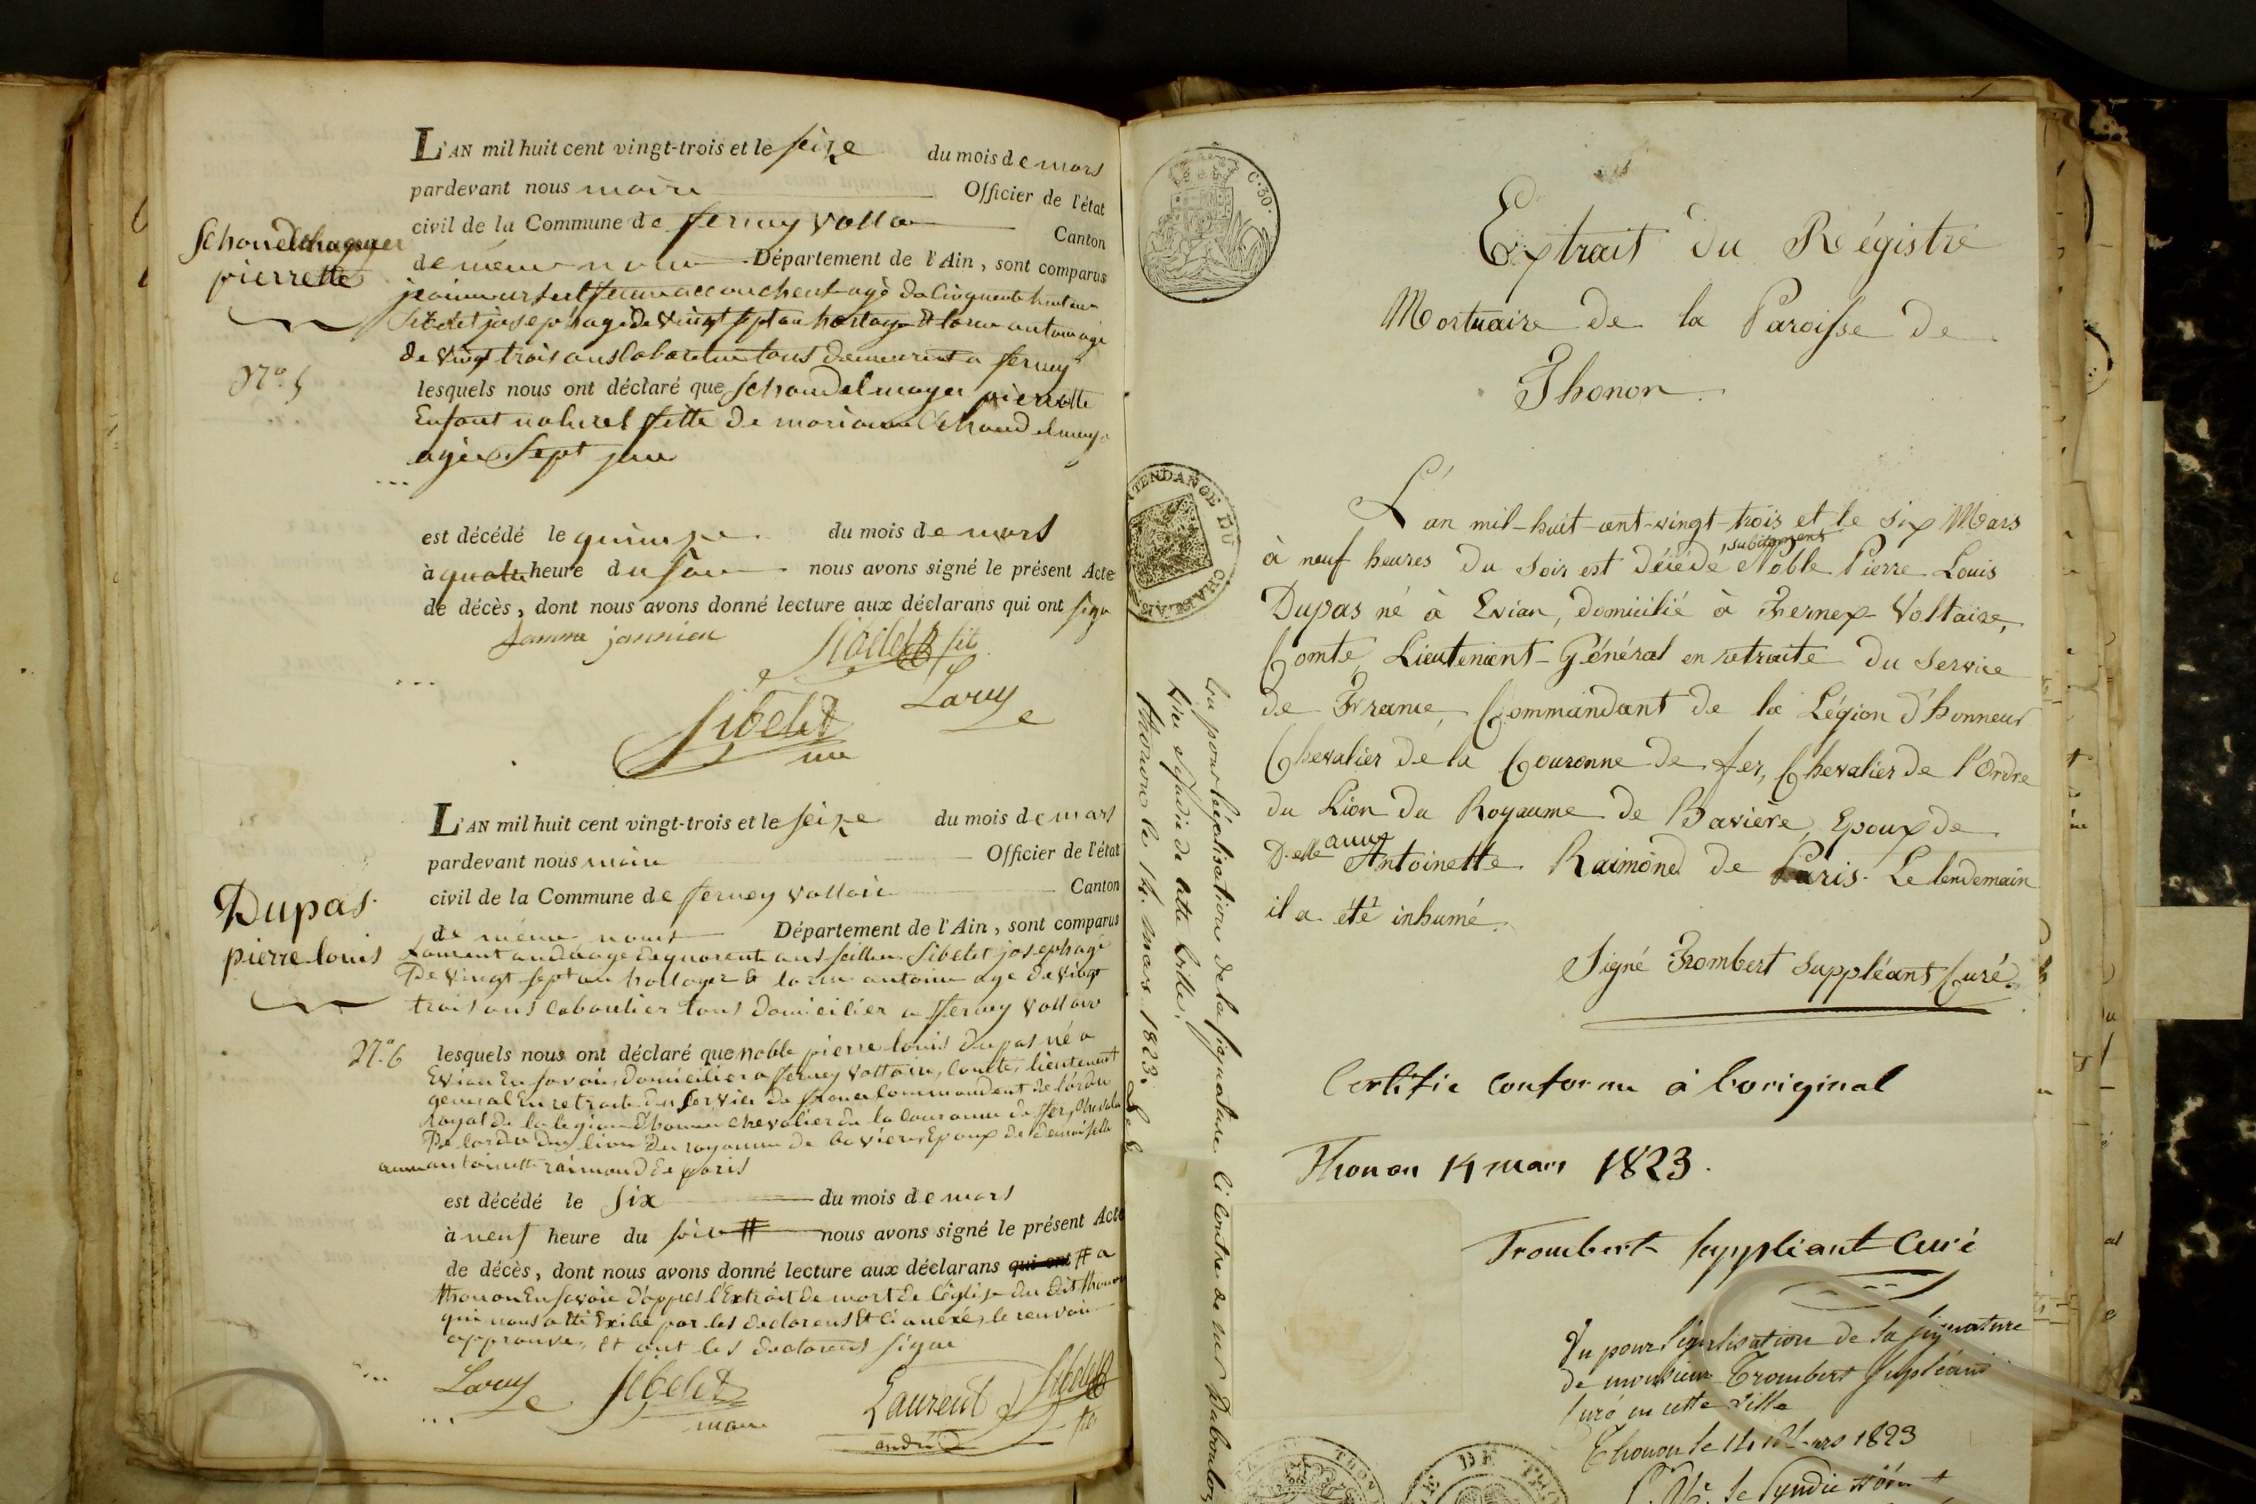 L'AN mil huit cent vingt-trois et le seize du mois de mars
pardevant nous maire Officier de l'état
civil de la Commune de ferney Volta Canton
de même nom Département de l'Ain, sont comparus
femme accouchent agé de Cinquante huit ans
Sibelet joseph agé de vingt sept an horloger & larue antoine agé
de vingt trois ans laboureur tous demeurent a ferney
lesquels nous ont déclaré que Schoudelmayer pierrette
Enfant naturel fille de mariane Schoudelmaye
agée Sept jour
Schoudelmayer
pierrette
N.o 5
est décédé le quinze du mois de mars
à quatre heure du soir nous avons signé le présent Acte
de décès, dont nous avons donné lecture aux déclarans qui ont signé
Sibelet fils
Larue
Sibelet
maire
L'AN mil huit cent vingt-trois et le seize du mois de mars
pardevant nous maire Officier de l'état
civil de la Commune de ferney voltaire Canton
de même nom Département de l'Ain, sont comparus
Laurent andré agé de quarente ans Sibelet joseph agé
De vingt sept an horloger & larue antoine agé de vingt
trois ans laboureur tous domicilier a fferney Voltaire
Dupas.
pierre louis
N.o 6
lesquels nous ont déclaré que noble pierre louis dupas né a
Evian En savoie, domicilier a ferney Voltaire, Comte, lieutenent
general En retraite du service de france Commandent de l'ordre
Royal de la legion d'honneur chevalier de la Couronne de fer, Chevalier
De lordre du lion du royaume de baviere Epoux de demoiselle
anne antoinette raimond de paris
est décédé le six du mois de mars
à neuf heure du soir # nous avons signé le présent Acte
de décès, dont nous avons donné lecture aux déclarans qui ont # a
thonon En savoie d'appres l'Extrait de mort de l'église du dit thonon
qui nous a été Exibé par les declarens Et ci anéxé, le renvoi
approuvé, et ont les declarens signé
Larue
Sibelet
maire
Laurent
andré
Sibelet
fils
C. 30.
Extrait du Régistre
Mortuaire de la Paroisse de
Thonon.
INTENDANCE DU CHABLAIS
L'an mil-huit-cent-vingt-trois et le six Mars
à neuf heures du soir est décédé, subitement Noble Pierre Louis
Dupas né à Evian, domicilié à Fernex-Voltaire,
Comte, Lieutenient-Général en retraite du service
de France, Commandant de la Légion d'honneur
Chevalier de la Couronne de fer, Chevalier de l'Ordre
du Lion du Royaume de Bavière, Epoux de
D.elle anne Antoinette Raimond de Paris. Le lendemain
il a été inhumé.
Signé Trombert Suppléant Curé.
Certifié conforme à l'original
Thonon 14 mars 1823.
Trombert Suppliant Curé
Vu pour légalisation de la signature
de monsieur Trombert Supléant
Curé en cette Ville
Thonon le 14 Mars 1823
le Syndic
Vu pour légalisation de la signature ci contre de
de cette Ville.
Thonon le 14. mars 1823.